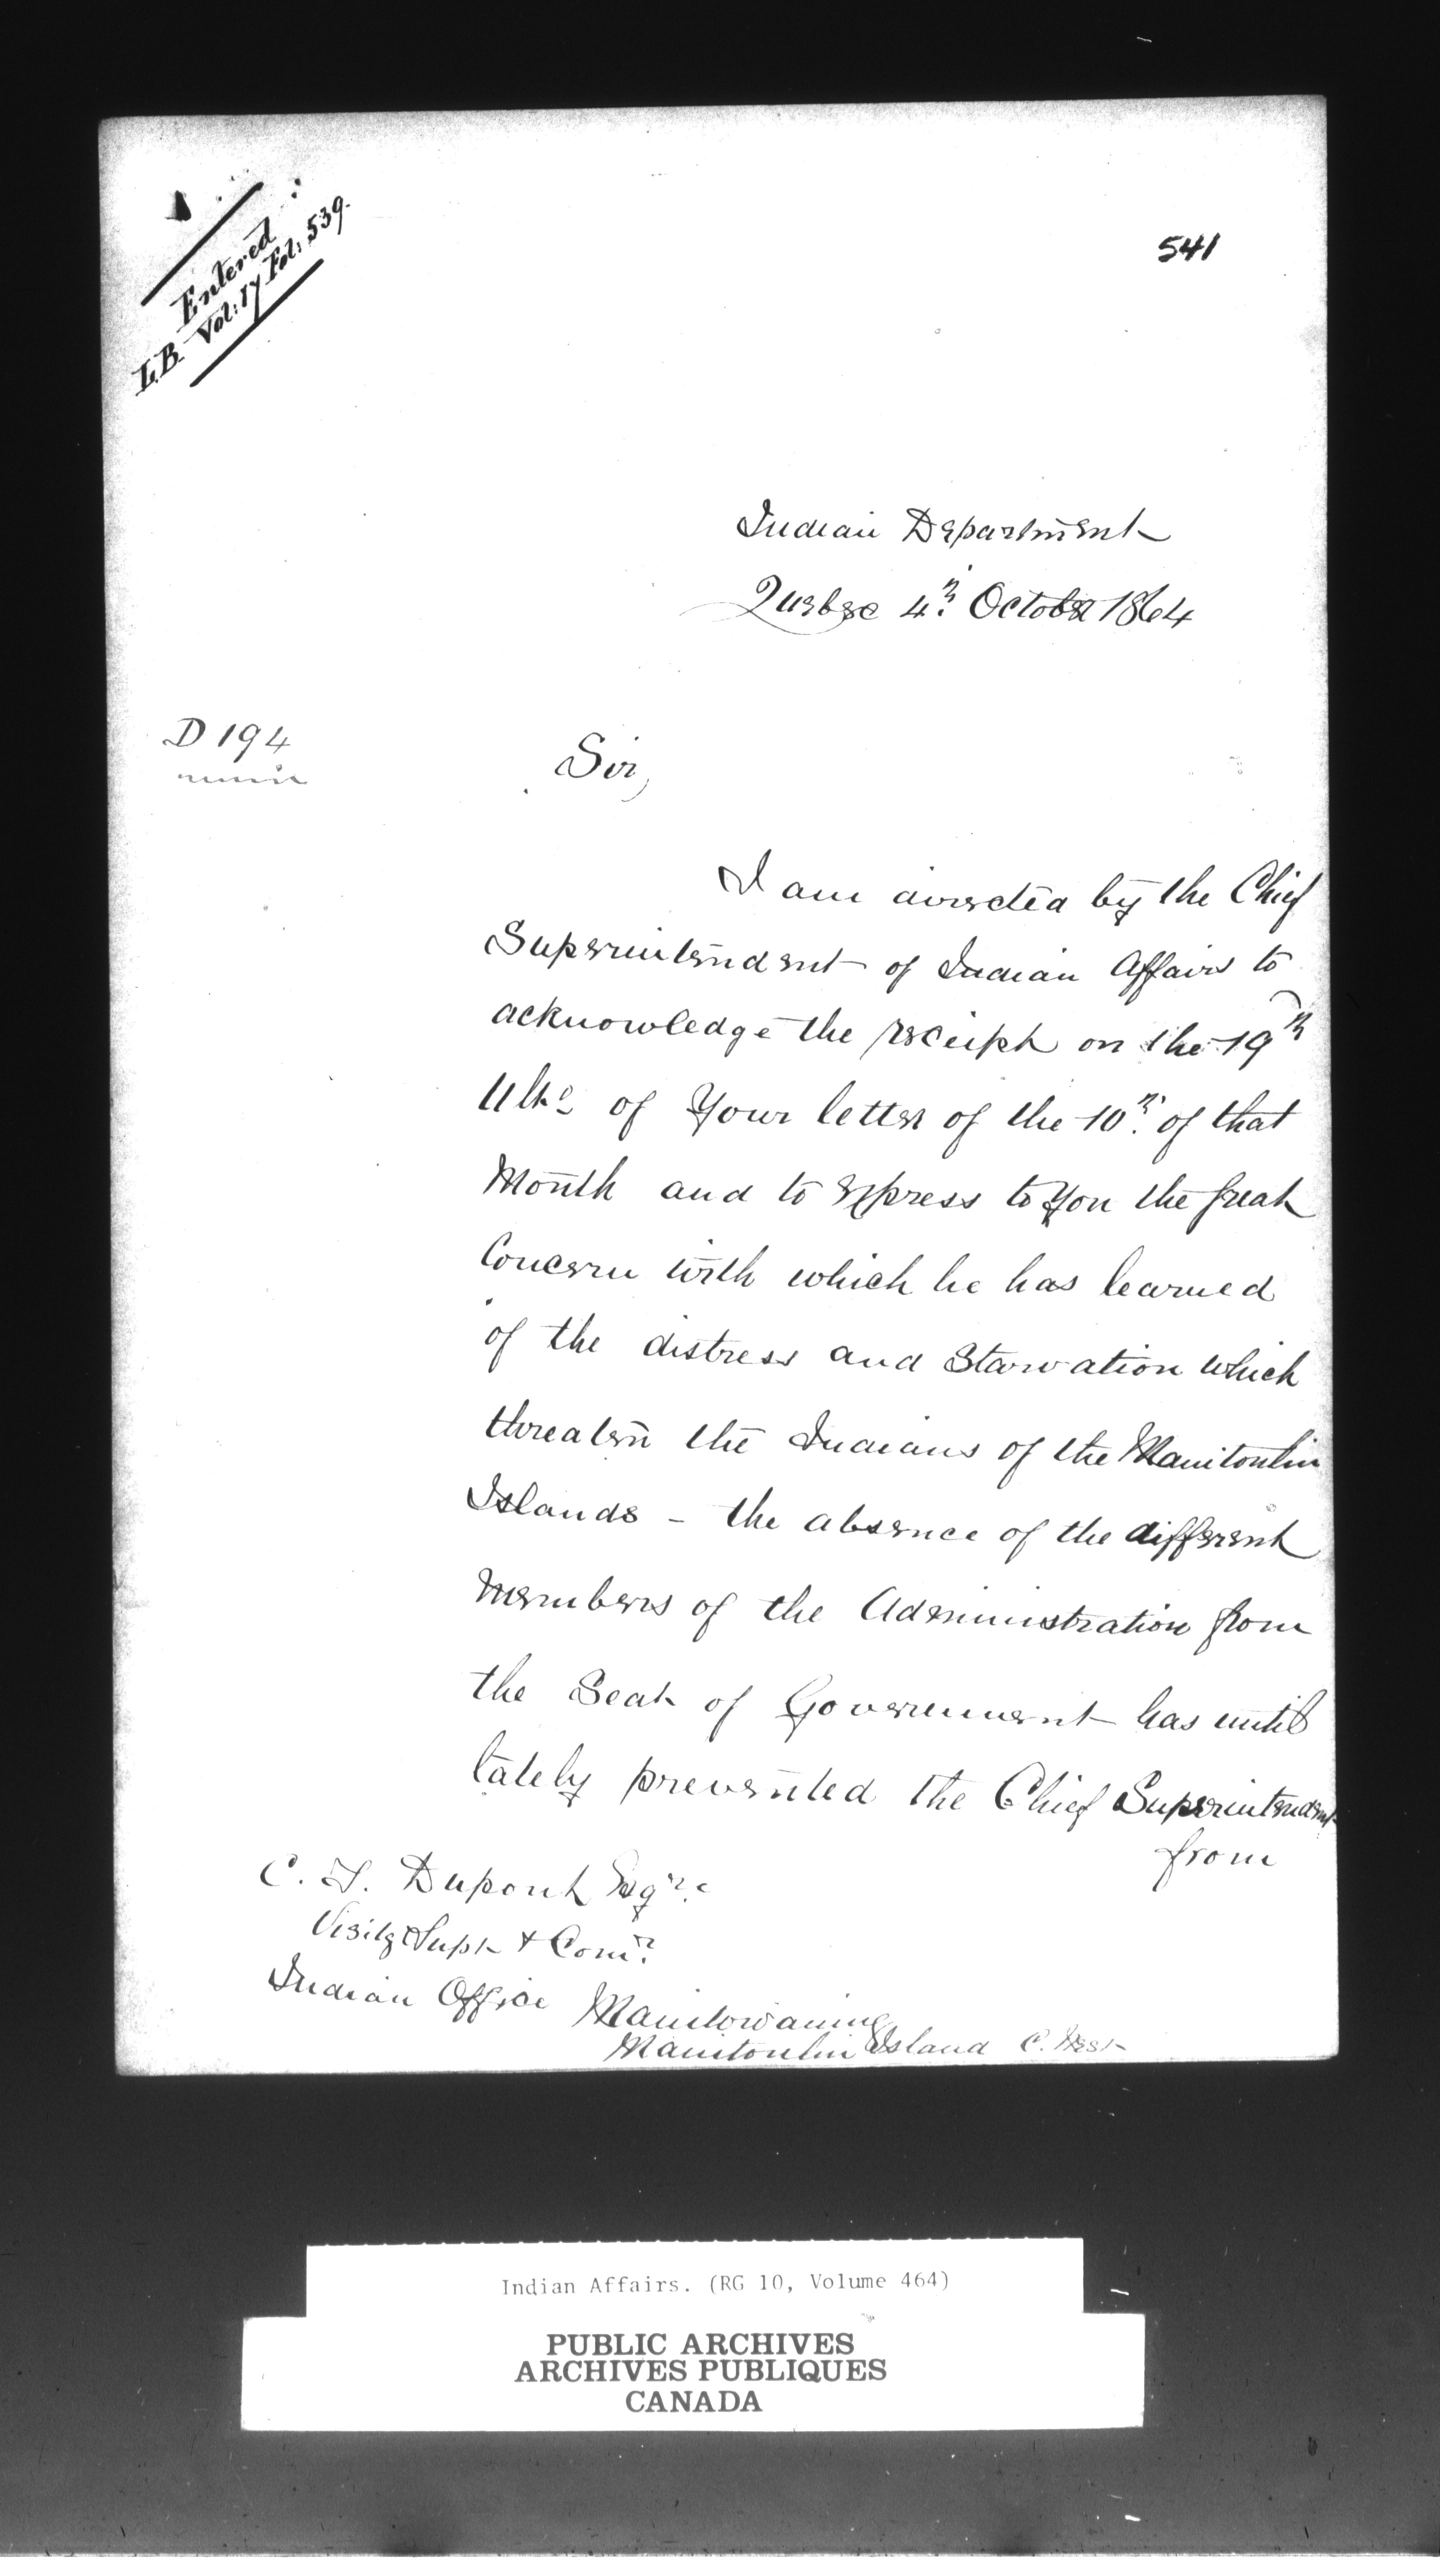 Entered
L.B. Vol: 17 Fol: 539.
541
Indian Department
Quebec 4th October 1864
D 194
Sir,
I am directed by the Chief
Superintendent of Indian Affairs to
acknowledge the receipt on the 19th
Ulto of Your letter of the 10th of that
Month and to express to You the great
Concern with which he has learned
of the distress and Starvation which
threaten the Indians of the Manitoulin
Islands - the absence of the different
Members of the Administration from
the Seat of Government has until
lately prevented the Chief Superintendent
from
C. T. Dupont Esqre
Visitg Supt & Comr
Indian Office Manitowaning
Manitoulin Island C. West
Indian Affairs. (RG 10, Volume 464)
PUBLIC ARCHIVES
ARCHIVES PUBLIQUES
CANADA